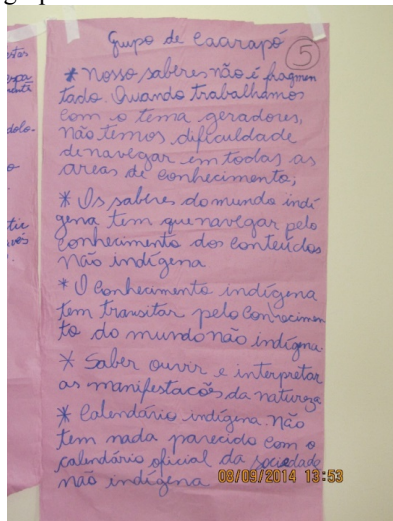 Grupo de Caarapó
5
* Nosso saberes não é fragmen
tado. Quando trabalhamos
com o tema geradores,
não temos dificuldade
de navegar em todas as
áreas de conhecimento;
* Os saberes do mundo indí
gena tem que navegar pelo
conhecimento dos conteúdos
não indígena
* O conhecimento indígena
tem transitar pelo conhecimen
to do mundo não indígena.
* Saber ouvir e interpretar
as manifestacões da natureza
* Calendário indígena. Não
tem nada parecido com o
calendário oficial da sociedade
não indígena
08/09/2014 13:53